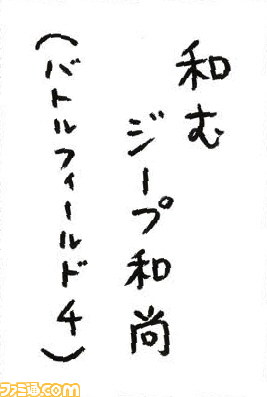 和む
ジープ和尚
（バトルフィールド４）
ファミ通.com